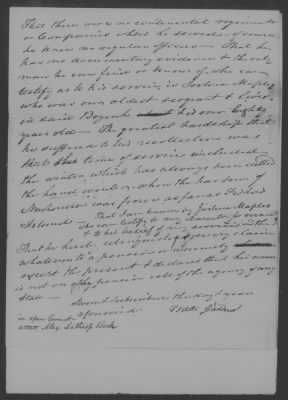 That there were no continental regiments
or Companies where he served & of course
he knew no regular officers — That he
has no documentary evidence & the only
man he can find or know of, who can
testify as to his service, is Joshua Maples
who was our oldest sergeant & lives
in said Bozrah & is over Eighty
years old — The greatest hardship that
he suffered to his recollection was
that this time of service included
the winter which has always been called
the hard winter, when the harbour of
was frozen as far as Fishers
Island — That I am known by Joshua Maples
who can testify to my character for veracity
& to his belief of my services in the
That he hereby relinquishes every claim
whatever to a pension or annuity
except the present & declares that his name
is not on the pension roll of the agency of any
State — Sworn & subscribed the day & year
aforesaid
in open Court
attest Alex Lathrop Clerk